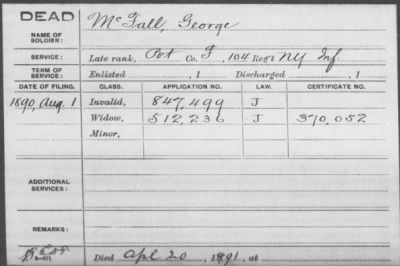 DEAD
NAME OF SOLDIER:
McFall, George
SERVICE:
Late rank, Pvt Co. F, 104 Reg't NY Inf
TERM OF SERVICE:
Enlisted , 1 Discharged , 1
DATE OF FILING. CLASS. APPLICATION NO. LAW. CERTIFICATE NO.
1890, Aug. 1 Invalid, 847,499 J
Widow, 512,236 J 370,052
Minor,
ADDITIONAL SERVICES:
REMARKS:
Died Apl 20, 1891, at